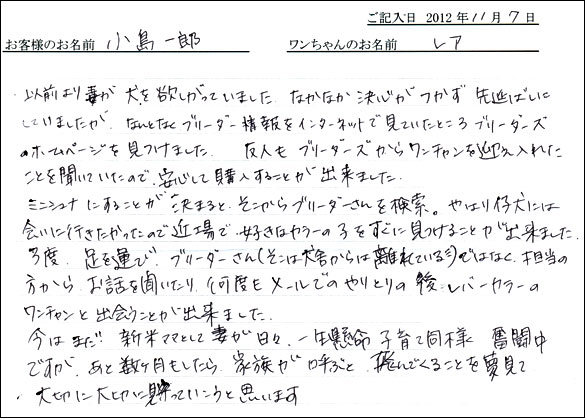 ご記入日 2012年11月7日
お客様のお名前 小島一郎 ワンちゃんのお名前 レア
・以前より妻が犬を欲しがっていました。なかなか決心がつかず先延ばしに
していましたが、なんとなくブリーダー情報をインターネットで見ていたところブリーダーズ
のホームページを見つけました。 友人もブリーダーズからワンチャンを迎え入れた
ことを聞いていたので、安心して購入することが出来ました。
ミニシュナにすることが決まると、そこからブリーダーさんを検索。やはり仔犬には
会いに行きたかったので近場で、好きなカラーの子をすぐに見つけることが出来ました。
3度、足を運び、ブリーダーさん(そこは犬舎からは離れている)ではなく、担当の
方からお話を聞いたり、何度もメールでのやりとりの後レバーカラーの
ワンチャンと出会うことが出来ました。
今はまだ 新米ママとして妻が日々、一生懸命子育て同様 奮闘中
ですが、あと数ヶ月もしたら、家族が呼ぶと 飛んでくることを夢見て
・大切に大切に 育っていこうと思います